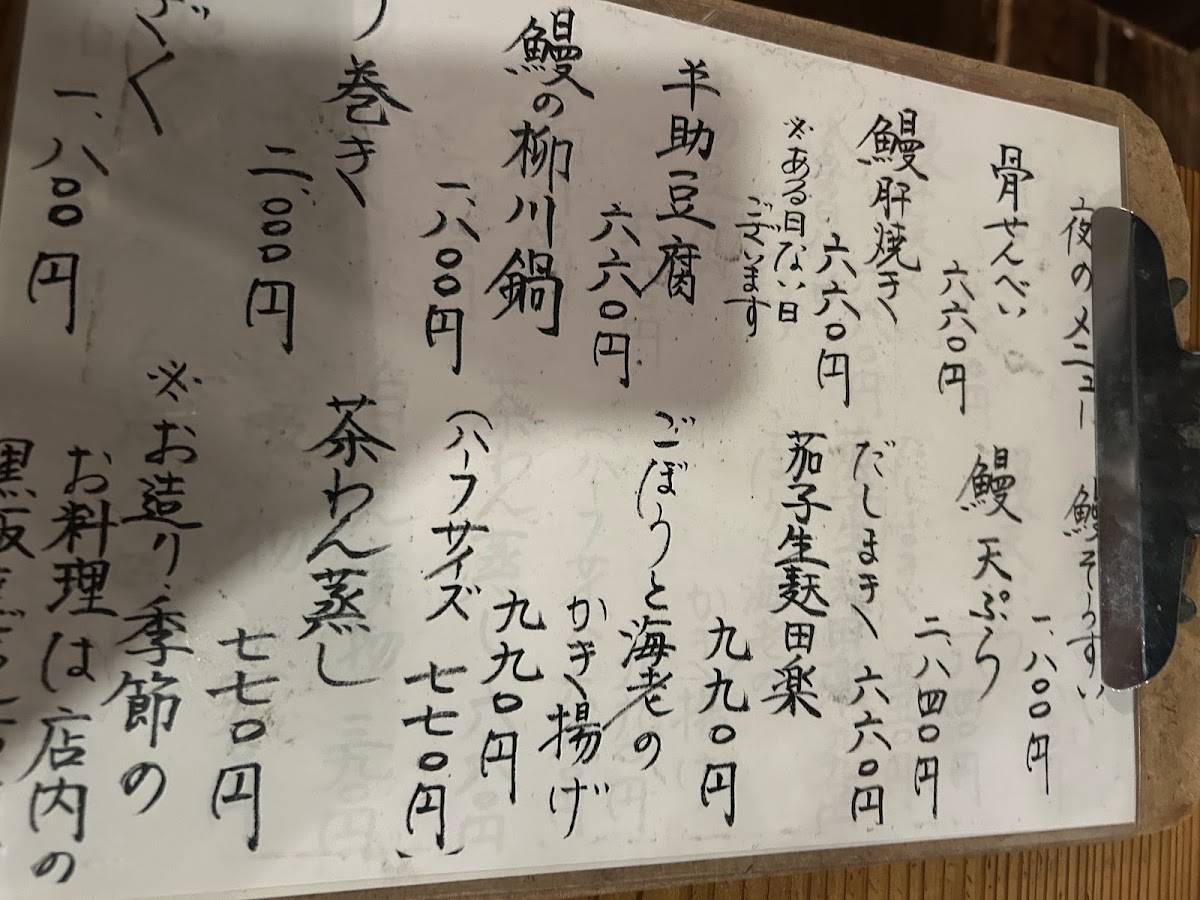 夜のメニュー
骨せんべい
六六〇円
鰻肝焼き
六六〇円
※ある日ない日
ございます
半助豆腐
六六〇円
鰻の柳川鍋
一、八〇〇円
巻き
二、〇〇〇円
ざく
一、八〇〇円
鰻ぞうすい
一、八〇〇円
鰻天ぷら
二、八四〇円
だしまき 六六〇円
茄子生麩田楽
九九〇円
ごぼうと海老の
かき揚げ
九九〇円
(ハーフサイズ 七七〇円)
茶わん蒸し
七七〇円
※お造り・季節の
お料理は店内の
黒板